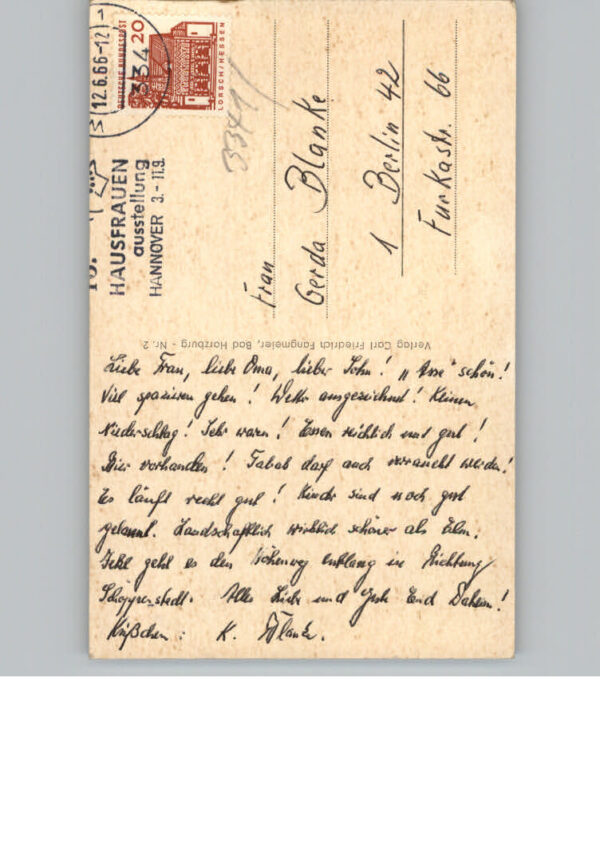 12.6.66-12
334
DEUTSCHE BUNDESPOST
20
LORSCH/HESSEN
HAUSFRAUEN
ausstellung
HANNOVER 3. - 11.9.
3341/
Frau
Gerda Blanke
1 Berlin 42
Furkastr. 66
Verlag Carl Friedrich Fangmeier, Bad Harzburg - Nr. 2
Liebe Frau, liebe Oma, lieber Sohn! „Asse“ schön!
Viel spazieren gehen! Wetter ausgezeichnet! Keinen
Niederschlag! Sehr warm! Essen reichlich und gut!
Bier vorhanden! Tabak darf auch verraucht werden!
Es läuft recht gut! Kinder sind noch gut
gelaunt. Landschaftlich wirklich schöner als Elm.
Jetzt geht es den Höhenweg entlang in Richtung
Schöppenstedt. Alles Liebe und
Küßchen: K. Blanke.